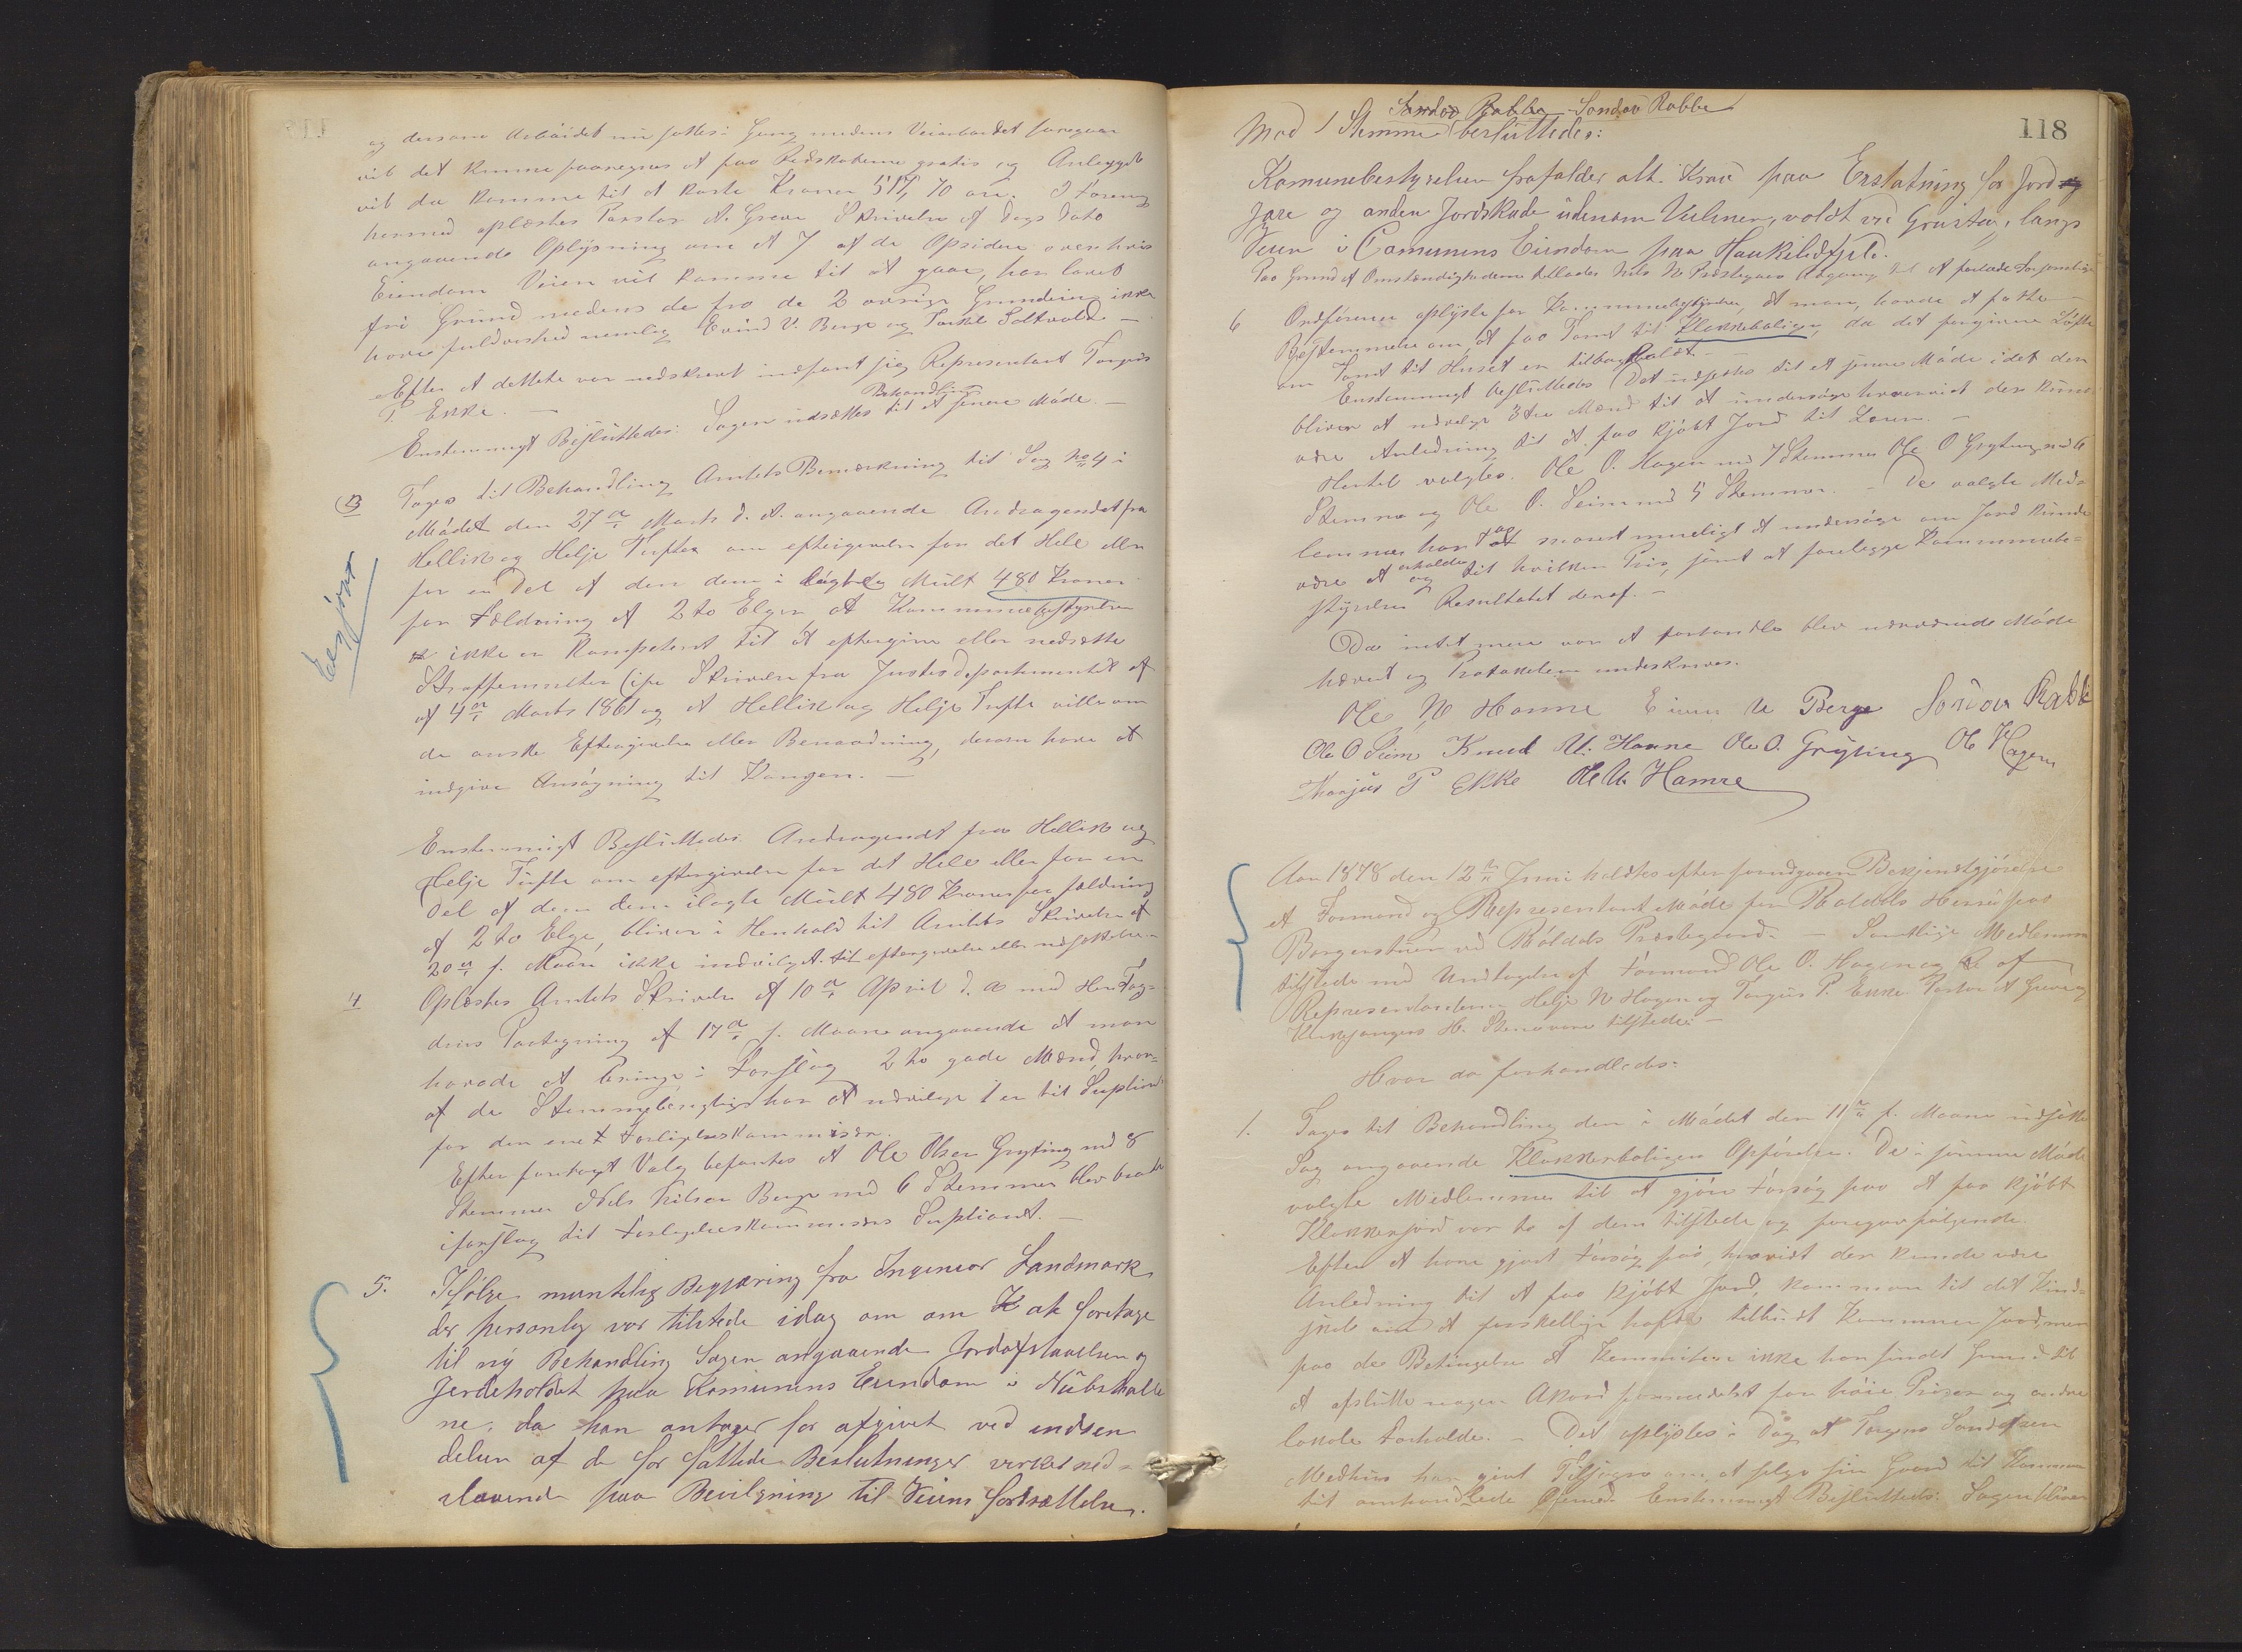 og dersom Arbåidet nu sættes i Gang medens Veiarbeidet foregaar
vil det kunne paaregnes at faa Redskaberne gratis og Anlægget
vil da komme til at koste Kroner 517, 70 øre. I Forening
hermed oplæstes Pastor A. Greve Skrivelse af Dags Dato
angaaende Oplysning om at 7 af de Opsidere over hvis
Eiendom Veien vil komme til at gaae, har lovet
fri Grund medens de fra de 2 øvrige Grundeiere ikke
haves fuldvished nemlig Eivind V. Berge og Torkel Soltvold —
Efter at dettete var nedskrevet indfant sig Representant Torgius
P. Ekke. —
Enstemmigt Besluttedes: Sagen udsættes Behandling til et senere Måde. —
3 Toges til Behandling Amtets Bemærkning til Sag No 4 i
Mådet den 27de Marts d. A. angaaende Andragendet fra
Hellik og Helje Tufte om eftergivelse for det Hele eller
for en Del af den dem i lagte Mult 480 Kroner
for Fældning af 2to Elger, at Kommunebestyrelsen
ikke er Kompetent til at eftergive eller nedsætte
Straffemulter (ifr Skrivelse fra Justisdepartementet af
af 4de Marts 1861 og at Hellik og Helje Tufte ville om
de ønske Eftergivelse eller Benaadning, derom have at
indgive Ansøgning til Kongen. —
Exsjoner
Enstemmigt Besluttedes: Andragendet fra Hellik og
Helje Tufte om eftergivelse for det Hele eller for en
Del af den dem ilagte Mult 480 Kroner for fældning
af 2to Elge, bliver i Henhold til Amtets Skrivelse af
20de f. Maan ikke indvilget til eftergivelse eller nedsættelse. —
4 Oplæstes Amtets Skrivelse af 10de April d. A. med Herr Fog-
dens Paategning af 17de f. Maane angaaende at man
havede at bringe i Forslag 2to gode Mænd, hvor-
af de Stemmeberegtige har at udvælge 1 en til Supliant
for den ene Forligelseskommisær.
Efter foretagt Valg befantes at Ole Olsen Gryting med 8
Stemmer Nels Nilsen Berge med 6 Stemmer blev bragt
i forslag til Forligelseskommisærs Supliant. —
5. Ifølge muntelig Begjæring fra Ingeniør Landmark
der personlig var tilstede idag om om at foretage
til ny Behandling Sagen angaaende Jordafstaaelsen og
Jerdeholdet paa Komunens Eiendom i Nübshalle
ne, da han antager for afgivet ved indsen
delsen af de for fattede Beslutninger virket ned-
slaaende paa Bevilgning til Veiens fortsættelse.
118
Sondov Rabbe
Mod 1 Stemme besluttedes:
Komunebestyrelsen frafalder alt Krav paa Erstatning for Jord
Jære og anden Jordskade udenom Veilinien, voldt ved Grustag langs
Veien i Comunens Eiendom paa Haukelidfjeld.
Paa Grund af Omstændighederne tillades Nels N Prestegaard Adgang til at forlade Forsamlingen
6 Ordføreren oplyste for Kommunebestyrelsen, at man havde at fatte
Bestemmelse om at faa Tomt til Klokkeboligen, da det forgivne Løfte
om Tomt til Huset er tilbagekaldt. —
Enstemmigt besluttedes Det udsættes til et senere Måde idet den
bliver at udvælge 3tre Mænd til at undersøge hvorvidt der kunde
være Anledning til at faa kjöbt Jord til Leien. —
Hertil valgtes. Ole O. Hagen med 7 Stemmer Ole O Gryting med 6
Stemmer og Ole O. Seim med 5 Stemmer. — De valgte Med-
lemmer har at snarest mueligt at undersøge om Jord kunde
være at erholde og til hvilken Pris, samt at forelægge Kommunebe-
styrelsen Resultatet deraf. —
Da intet mere var at forhandle blev nærværende Måde
hævet og Protokollen underskreves.
Ole N Hamre Eivin V Berge Sondov Rabbe
Ole O Seim Knud U. Hamre Ole O. Gryting Ole Hagen
Thorgius P Ekke Ole U Hamre
Aar 1878 den 12te Juni holdtes efter forudgaaen Bekjentgjørelse
et Formand og Representant Måde for Røldals Herred paa
Borgerstuen ved Røldals Præstegaard. — Samtlige Medlemmer
tilstede med Undtagelse af Formand Ole O. Hagen og af
Representanterne Helje N Hagen og Torgius P. Ekke Pastor A Greve og
Kirkesanger H. Steine vare tilstede. —
Hvor da forhandledes:
1. Toges til Behandling den i Mådet den 11te f. Maane udsatte
Sag angaaende Klokkerboligens Opførelse. De i samme Måde
valgte Medlemmer til at gjöre Forsøg paa at faa kjöbt
Klokkerjord var to af dem tilstede og foregav følgende.
Efter at have gjort Forsøg paa, hvorvidt der kunde være
Anledning til at faa kjöbt Jord, kom man til det Kund-
skab om at forskellige havde tilbudt Kommunen Jord, men
paa de Betingelser at Kommiteen ikke har fundet Grund til
at afslutte nogen Akord formedelst for høie Priser og andre
lokale Forholde. — Det oplystes i Dag at Torgeus Sondresen
Medhus har givet Tilsagn om at selge sin Gaard til Kommunen
til omhandlede Øiemed. Enstemmigt Besluttedes: Sagen bliver